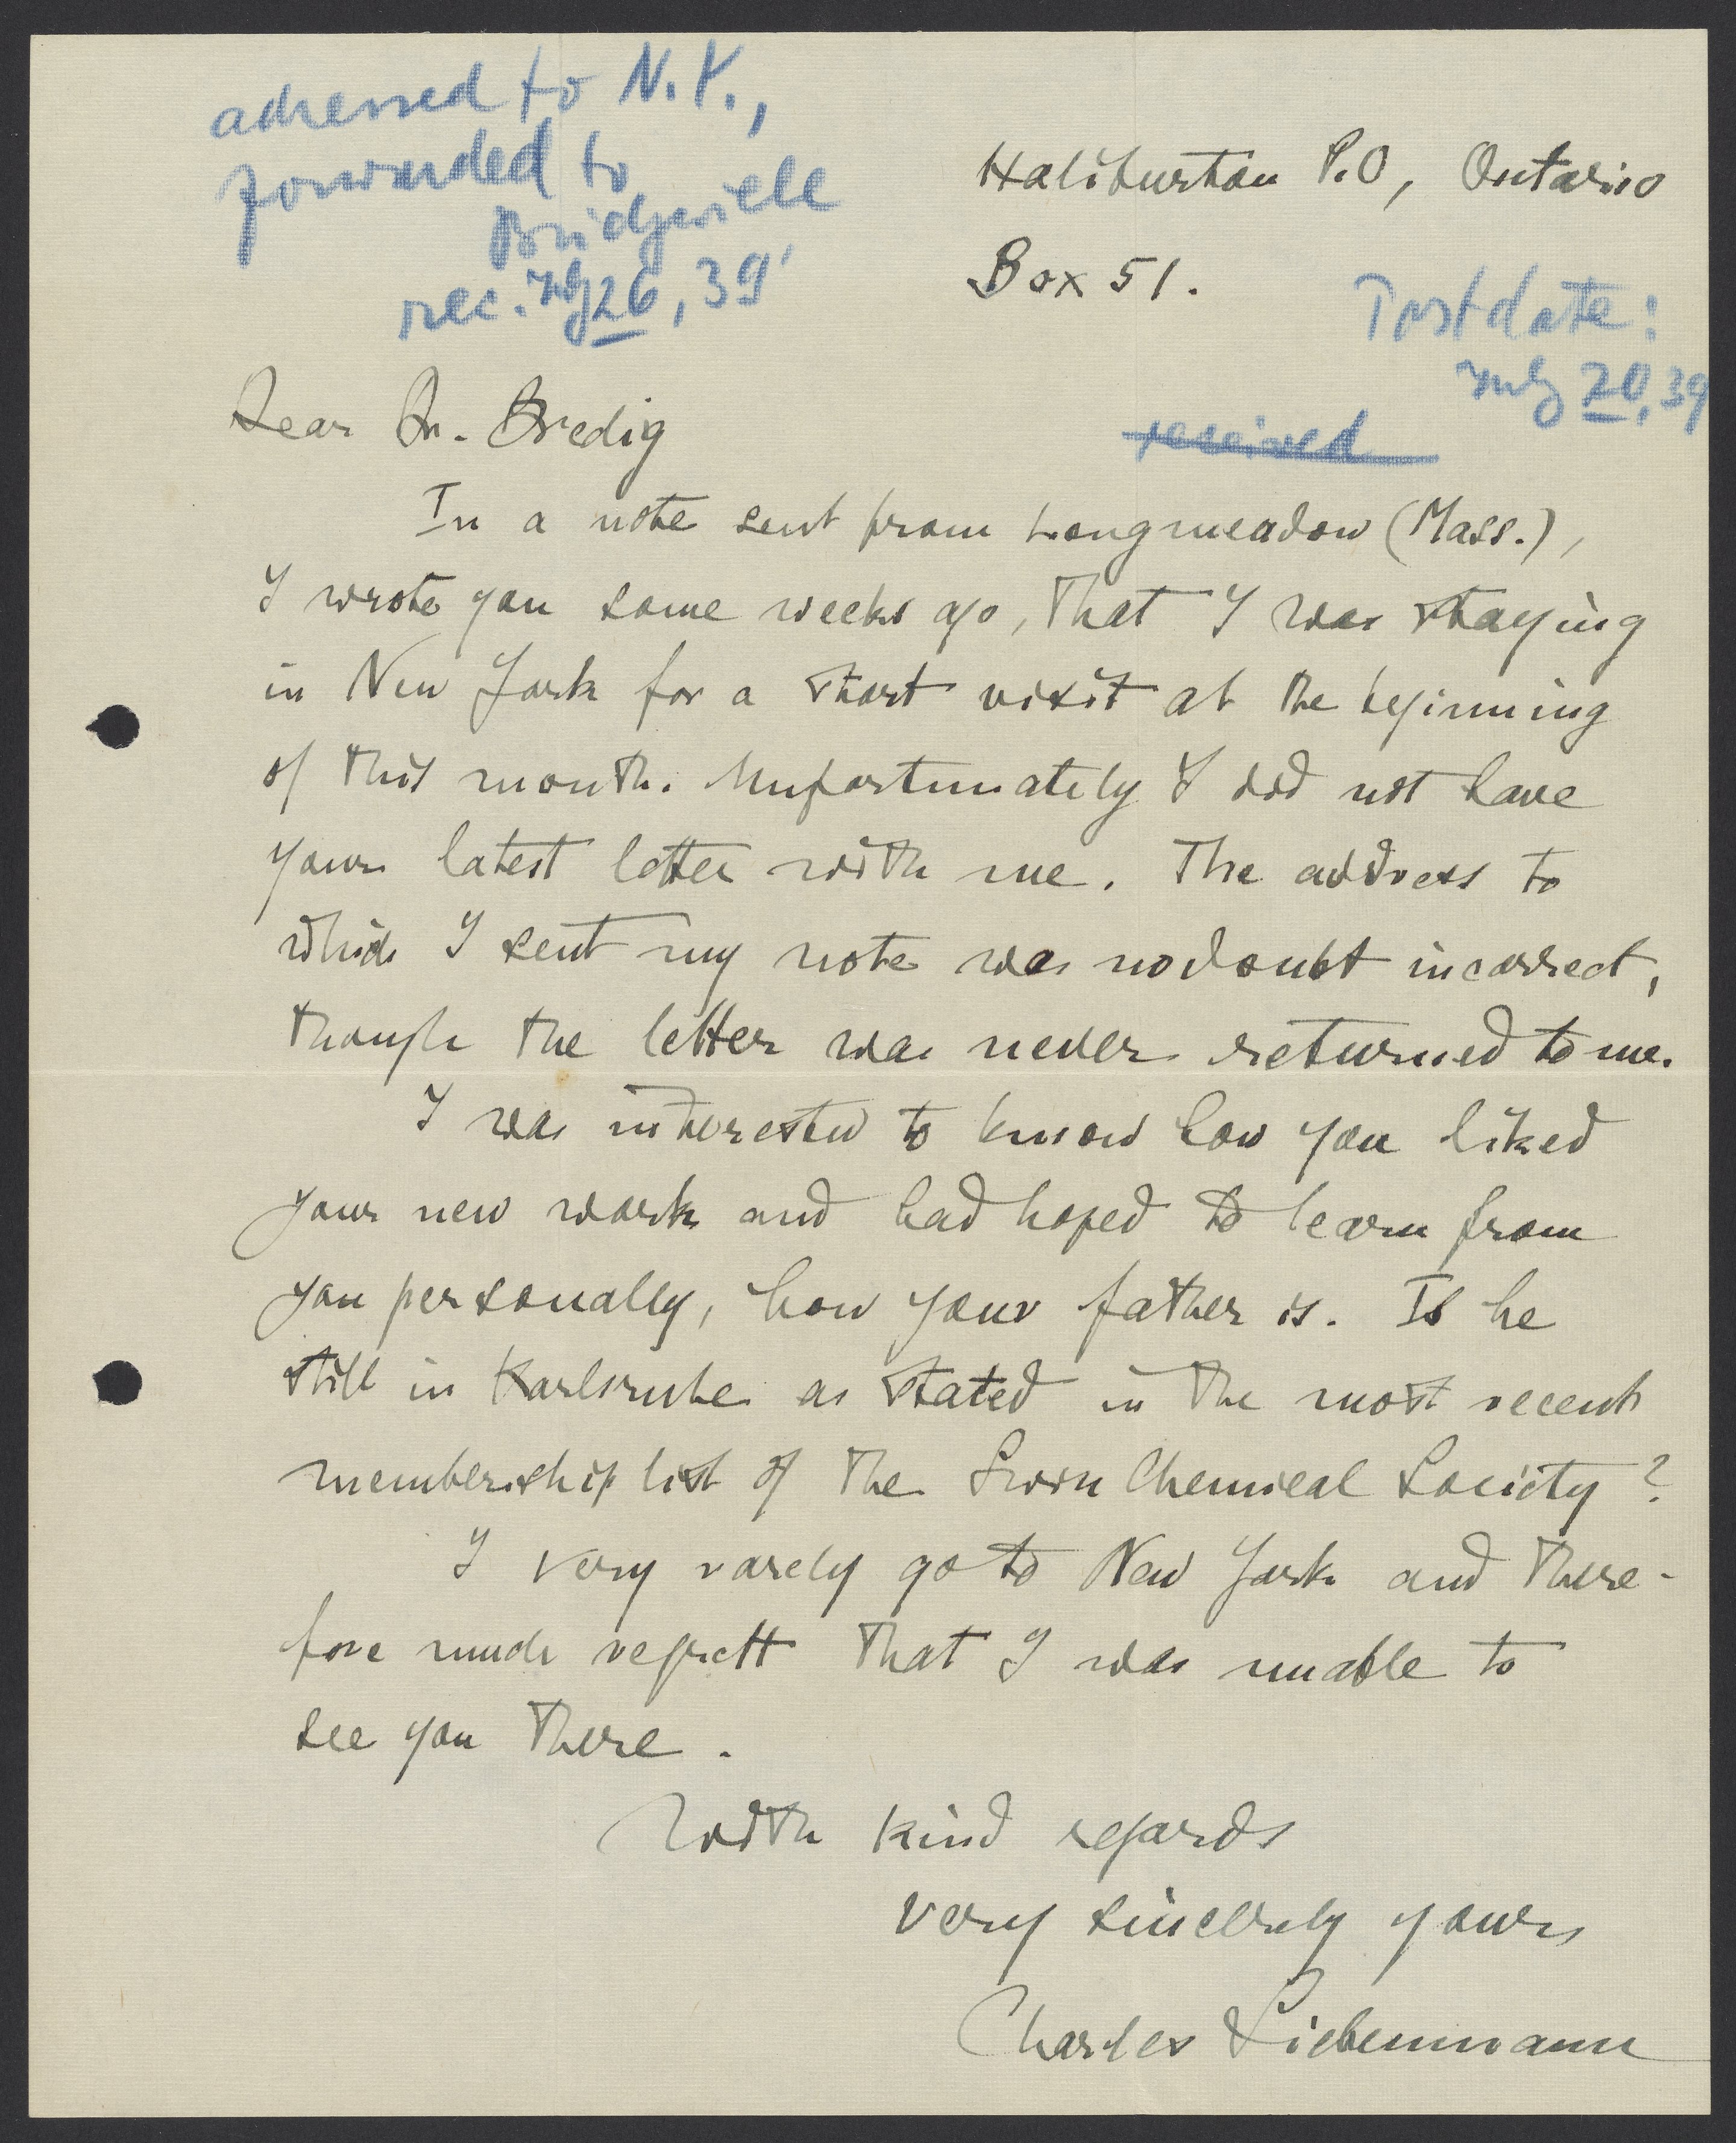 adressed to N.Y.,
forwarded to
Bridgeville
rec. July 26, 39'
Haliburton P.O, Ontario
Box 51.
Postdate:
July 20, 39
received
Dear Dr. Bredig
In a note sent from Longmeadow (Mass.),
I wrote you some weeks ago, that I was staying
in New York for a short visit at the beginning
of this month. Unfortunately I did not have
your latest letter with me. The address to
which I sent my note was no doubt incorrect,
though the letter was never returned to me.
I was interested to know how you liked
your new work and had hoped to learn from
you personally, how your father is. Is he
still in Karlsruhe as stated in the most recent
membership list of the Swiss Chemical Society?
I very rarely go to New York and there-
fore much regrett that I was unable to
see you there.
With kind regards
very sincerely yours
Charles Liebenmann